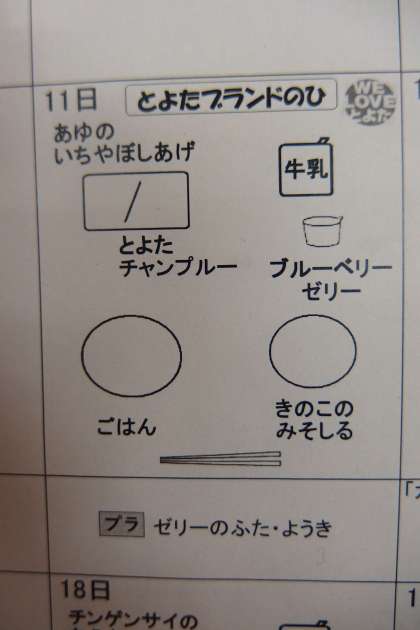 11日
とよたブランドのひ
WE
LOVE
とよた
あゆの
いちやぼしあげ
牛乳
とよた
チャンプルー
ブルーベリー
ゼリー
ごはん
きのこの
みそしる
プラ ゼリーのふた・ようき
18日
チンゲンサイの